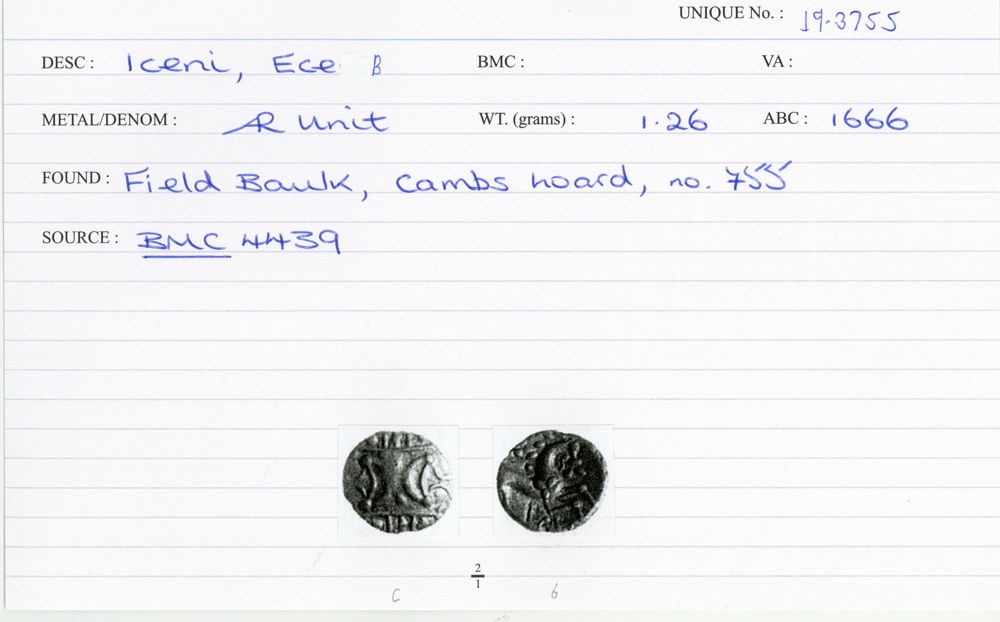 UNIQUE No. : 19-3755
DESC : Iceni, Ece B BMC : VA :
METAL/DENOM : AR Unit WT. (grams) : 1.26 ABC : 1666
FOUND : Field Baulk, Cambs hoard, no. 755
SOURCE : BMC 4439
2
1
c 6